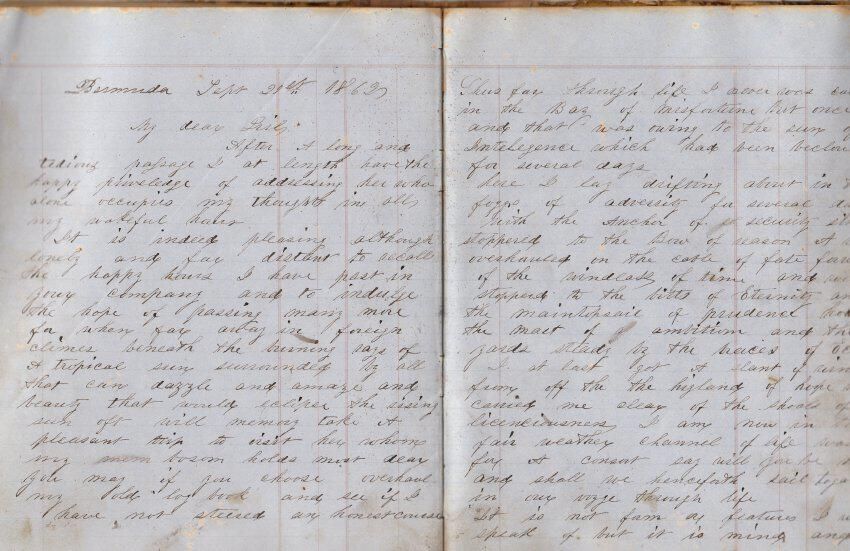 Bermuda Sept 20th 1863
My dear
After A long and
tedious passage I at length have the
happy priviledge of addressing her who
alone occupies my thoughts in all
my wakeful hours
It is indeed pleasing although
lonely and far distant to recall
the happy hours I have past in
your company and to indulge
the hope of passing many more
for when far away in foreign
climes beneath the burning rays of
A tropical sun surrounded by all
that can dazzle and amaze and
beauty that would eclipse the rising
sun oft will memory take A
pleasant trip to visit her whom
my bosom holds most dear
you may if you choose overhaul
my old log book and see if I
have not steered an honest course
Thus far through life I never was
in the Bay of misfortune But once
and that was owing to the sun of
Intelegence which had been
for several days
here I lay drifting about in
fogs of adversity for several
with the Anchor of security
stoppered to the Bow of reason
overhauled on the cable of fate
of the windlass of time and
stopperd to the bitts of Eternity
the maintopsail of prudence
the mast of ambition and the
yards steady by the braces of
I at last got A slant of
from off the the highland of hope
carried me clear of the shoals of
licenciousness I am now in
fair weather channel of life
for A consort say will you be
and shall we henceforth sail
in our voyge through life
It is not form or features I
speak of but it is mind and